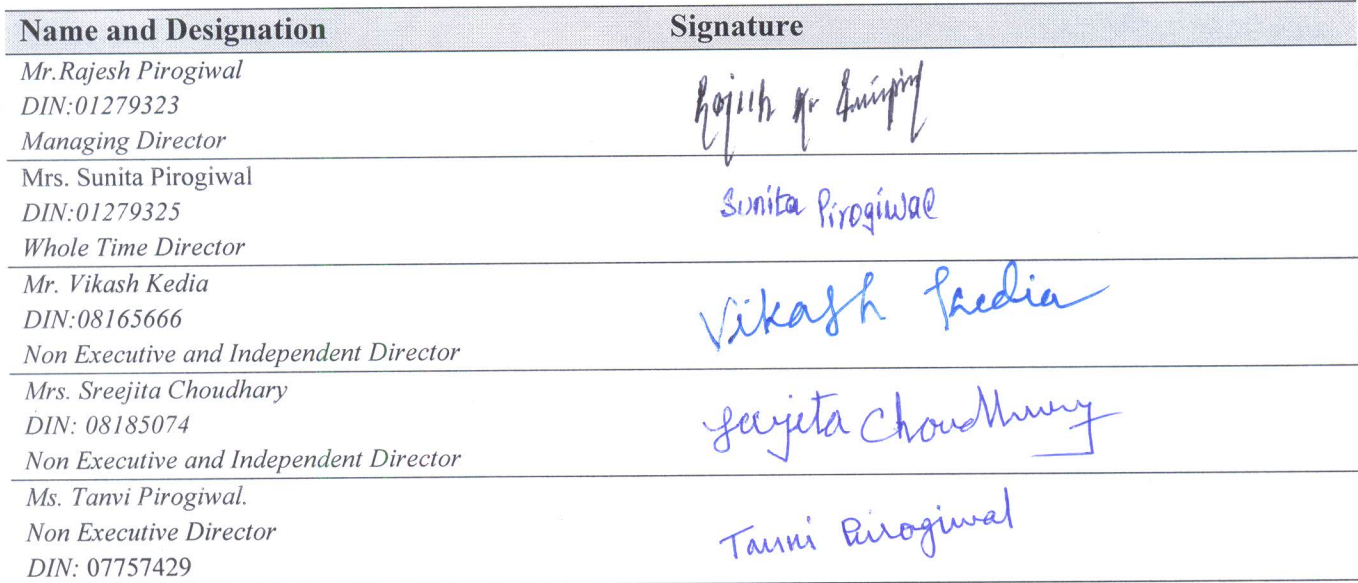 Name and Designation Signature
Mr.Rajesh Pirogiwal
DIN:01279323
Managing Director
Rajesh Kr
Mrs. Sunita Pirogiwal
DIN:01279325
Whole Time Director
Sunita Pirogiwal
Mr. Vikash Kedia
DIN:08165666
Non Executive and Independent Director
Vikash Kedia
Mrs. Sreejita Choudhary
DIN: 08185074
Non Executive and Independent Director
Choudhury
Ms. Tanvi Pirogiwal.
Non Executive Director
DIN: 07757429
Tanvi Pirogiwal